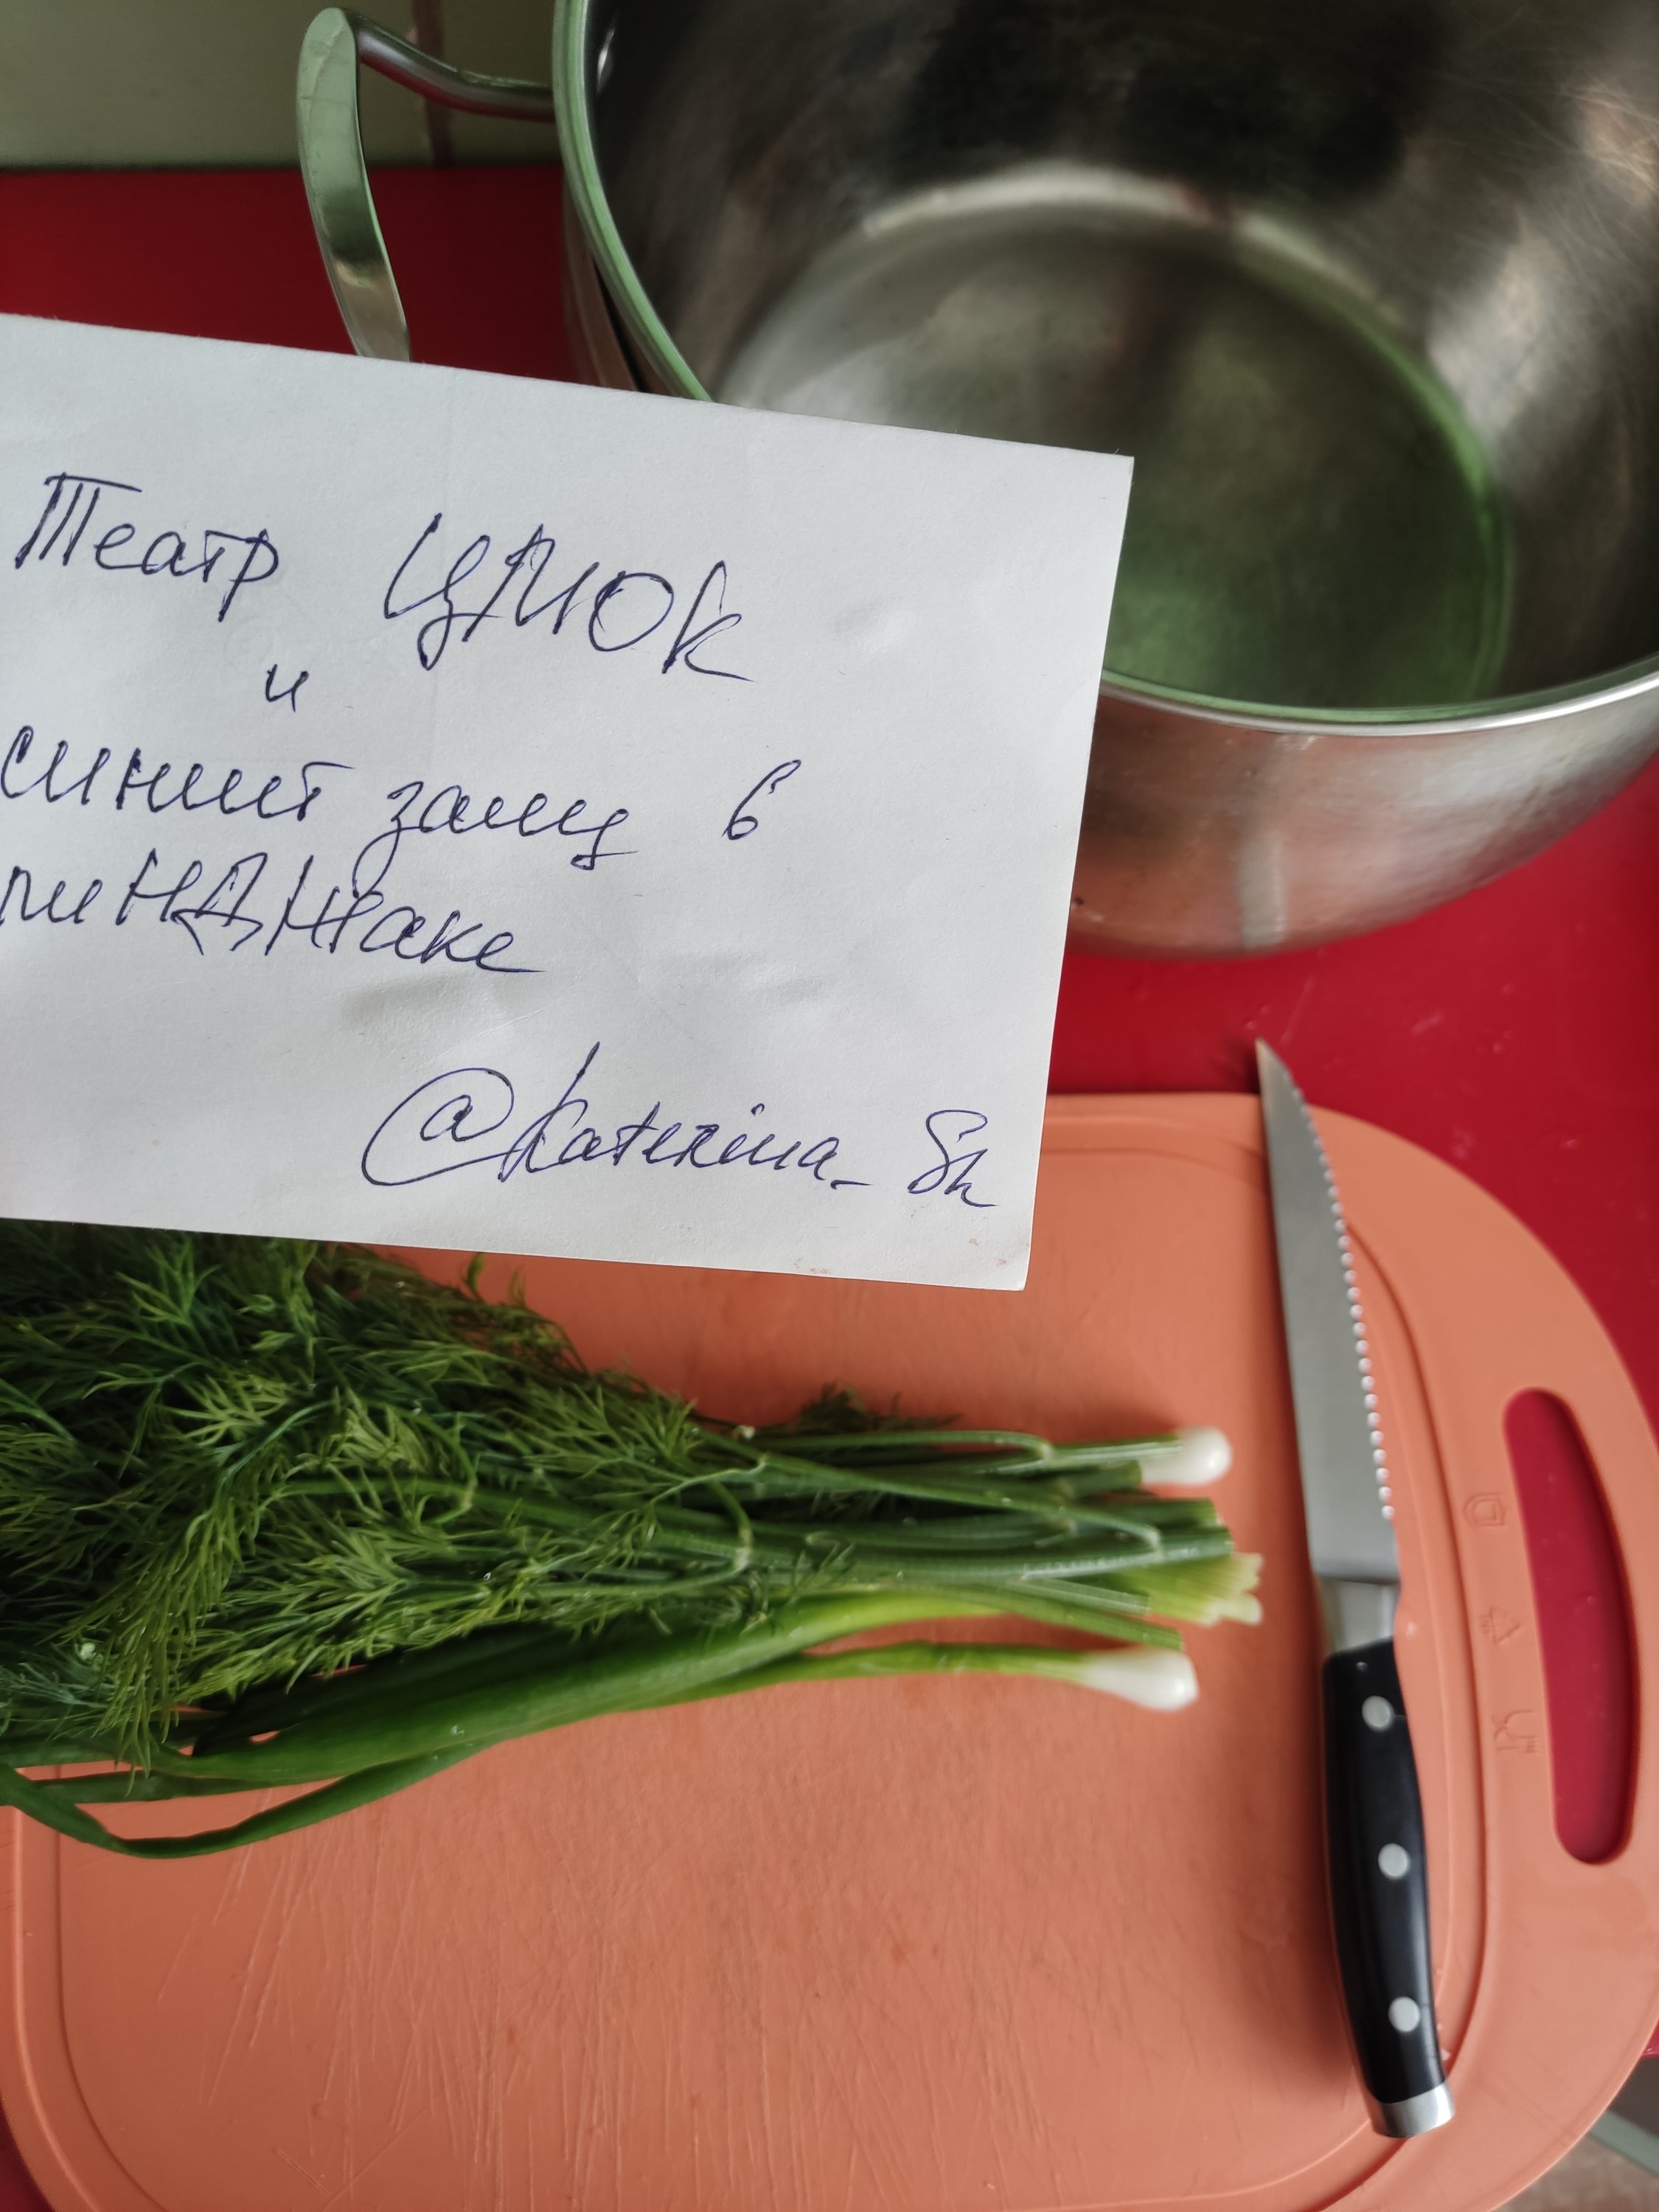 Театр
и
синий заяц в
пинджаке
@Katerina_Sh